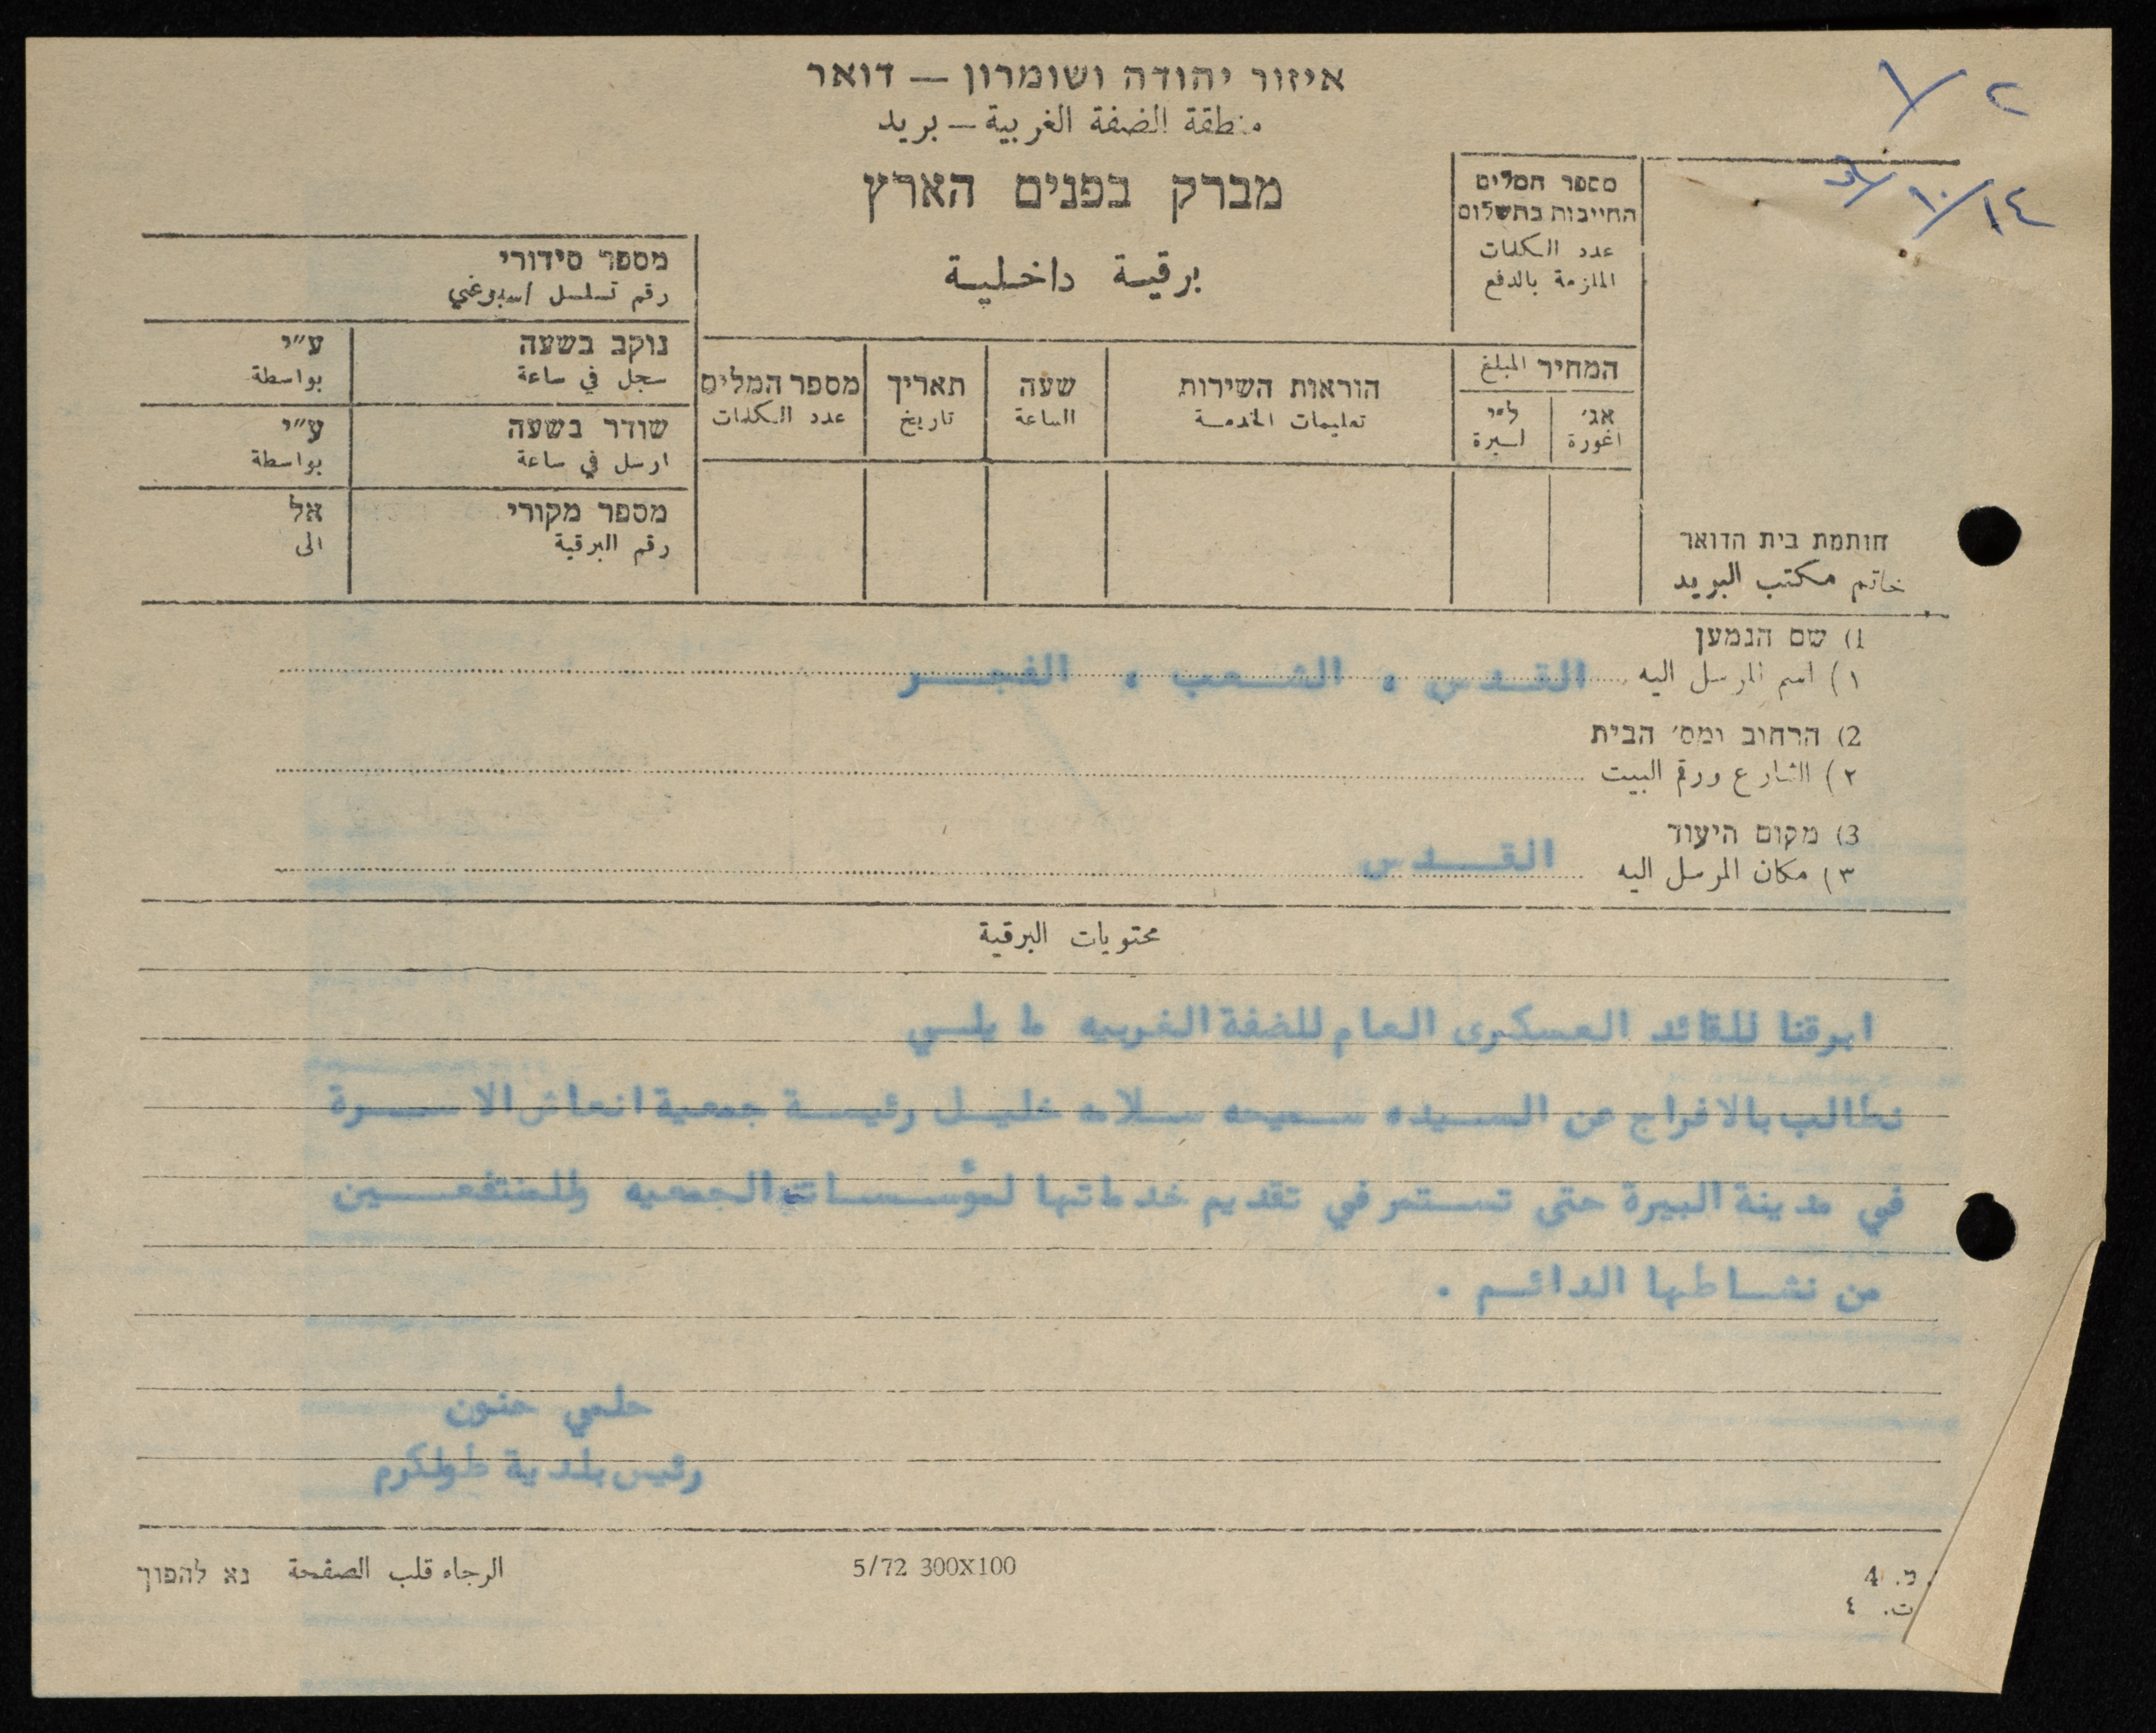 איזור יהודה ושומרון — דואר
منطقة الضفة الغربية — بريد
מברק בפנים הארץ
برقية داخلية
١٤/١٠/
מספר המלים
החייבות בתשלום
عدد الكلمات
الملزمة بالدفع
מספר סידורי
رقم تسلسل اسبوعي
נוקב בשעה ע״י
سجل في ساعة بواسطة
שודר בשעה ע״י
ارسل في ساعة بواسطة
מספר מקורי אל
رقم البرقية الى
המחיר المبلغ
אג׳ ל״י
اغورة ليرة
הוראות השירות
تعليمات الخدمة
שעה
الساعة
תאריך
تاريخ
מספר המלים
عدد الكلمات
חותמת בית הדואר
خاتم مكتب البريد
1) שם הנמען
١) اسم المرسل اليه القدس ، الشعب ، الفجر
2) הרחוב ומס׳ הבית
٢) الشارع ورقم البيت
3) מקום היעוד
٣) مكان المرسل اليه القدس
محتويات البرقية
ابرقنا للقائد العسكرى العام للضفة الغربيه ما يلي
نطالب بالافراج عن السيده سميحه سلامه خليل رئيسة جمعية انعاش الاسرة
في مدينة البيرة حتى تستمر في تقديم خدماتها لمؤسسات الجمعيه وللمنتفعين
من نشاطها الدائم .
حلمي حنون
رئيس بلدية طولكرم
الرجاء قلب الصفحة נא להפוך
5/72 300X100
מ. 4
ت. ٤